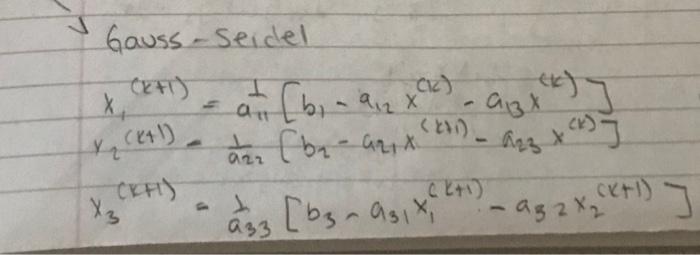 Gauss-Seidel
x₁^(k+1) = 1/a₁₁ [b₁ - a₁₂ x^(k) - a₁₃ x^(k)]
x₂^(k+1) = 1/a₂₂ [b₂ - a₂₁ x^(k+1) - a₂₃ x^(k)]
x₃^(k+1) = 1/a₃₃ [b₃ - a₃₁ x₁^(k+1) - a₃₂ x₂^(k+1)]